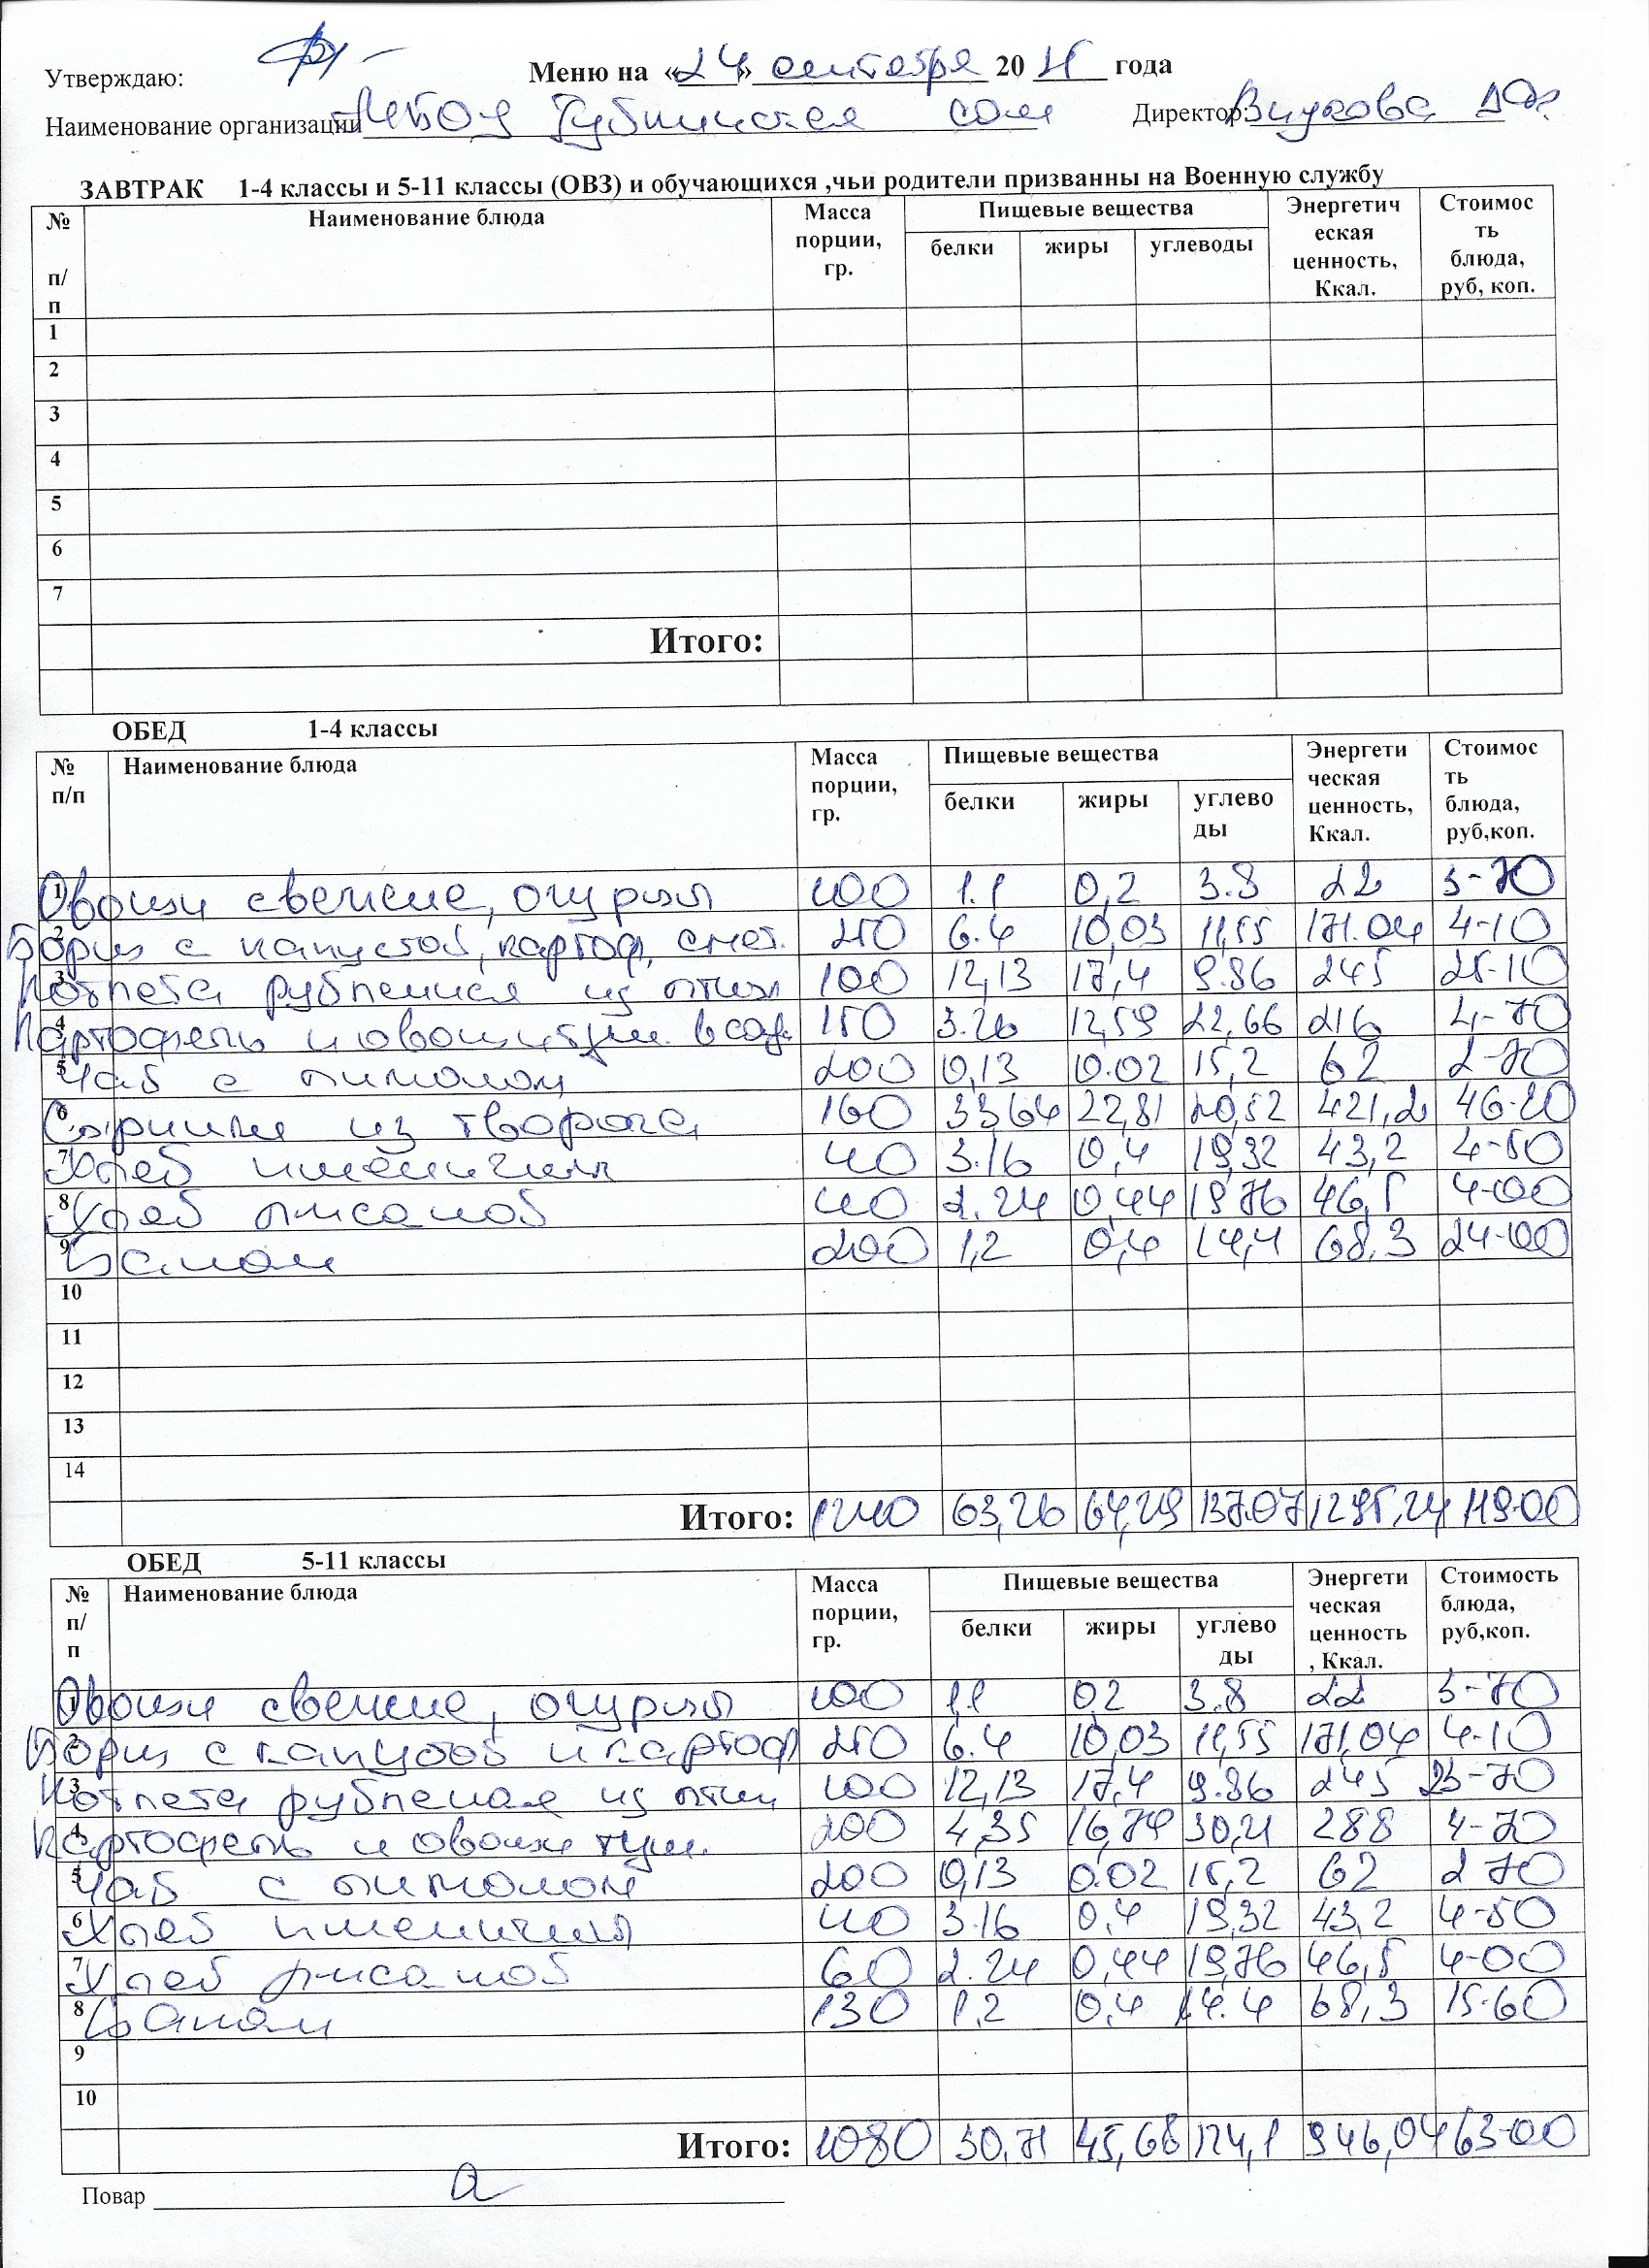 Утверждаю:
Меню на «24» сентября 20 г. года
Наименование организации МБОУ Губшинская сош Директор:
ЗАВТРАК 1-4 классы и 5-11 классы (ОВЗ) и обучающихся ,чьи родители призванны на Военную службу
№ п/п Наименование блюда Масса порции, гр. Пищевые вещества Энергетическая ценность, Ккал. Стоимость блюда, руб, коп.
белки жиры углеводы
1
2
3
4
5
6
7
Итого:
ОБЕД 1-4 классы
№ п/п Наименование блюда Масса порции, гр. Пищевые вещества Энергетическая ценность, Ккал. Стоимость блюда, руб,коп.
белки жиры углеводы
1 Овощи свежие, огурцы 100 1.1 0,2 3.8 22 3-70
2 Борщ с капустой, картоф, смет. 250 6.4 10,03 11,55 171.04 4-10
3 Котлета рубленная из птиц 100 12,13 17,4 9.86 245 25-10
4 Картофель и овощи туш. в соус. 150 3.26 12,59 22,66 216 4-70
5 Чай с лимоном 200 0,13 0.02 15,2 62 2-70
6 Сырники из творога 160 33,64 22,81 20,52 421,2 46-20
7 Хлеб пшеничный 40 3.16 0,4 19,32 43,2 4-50
8 Хлеб ржаной 40 2.24 0,44 19,76 46,5 4-00
9 Банан 200 1,2 0,4 14,4 68,3 24-00
10
11
12
13
14
Итого: 1240 63,26 64,29 137.07 1295,24 119-00
ОБЕД 5-11 классы
№ п/п Наименование блюда Масса порции, гр. Пищевые вещества Энергетическая ценность, Ккал. Стоимость блюда, руб,коп.
белки жиры углеводы
1 Овощи свежие, огурцы 100 1.1 02 3.8 22 3-70
2 Борщ с капустой и картоф 250 6.4 10,03 11,55 171,04 4-10
3 Котлета рубленая из птиц 100 12,13 17,4 9.86 245 23-70
4 Картофель и овощи туш. 200 4,35 16,79 30,21 288 4-70
5 Чай с лимоном 200 0,13 0.02 15,2 62 2 70
6 Хлеб пшеничный 40 3.16 0,4 19,32 43,2 4-50
7 Хлеб ржаной 60 2.24 0,44 19,76 46,5 4-00
8 Банан 130 1,2 0,4 14.4 68,3 15-60
9
10
Итого: 1080 30,71 45,68 124,1 946,04 63-00
Повар